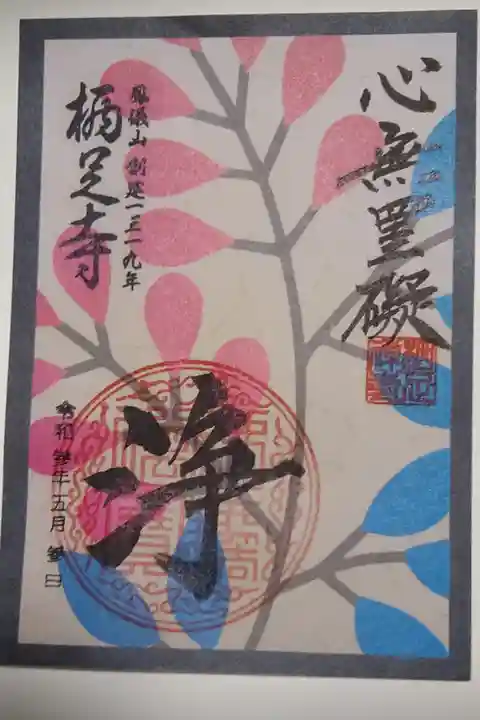 心無罣礙
浄
鳳儀山 創建一三一九年
栖足寺
令和 参年 五月 参日